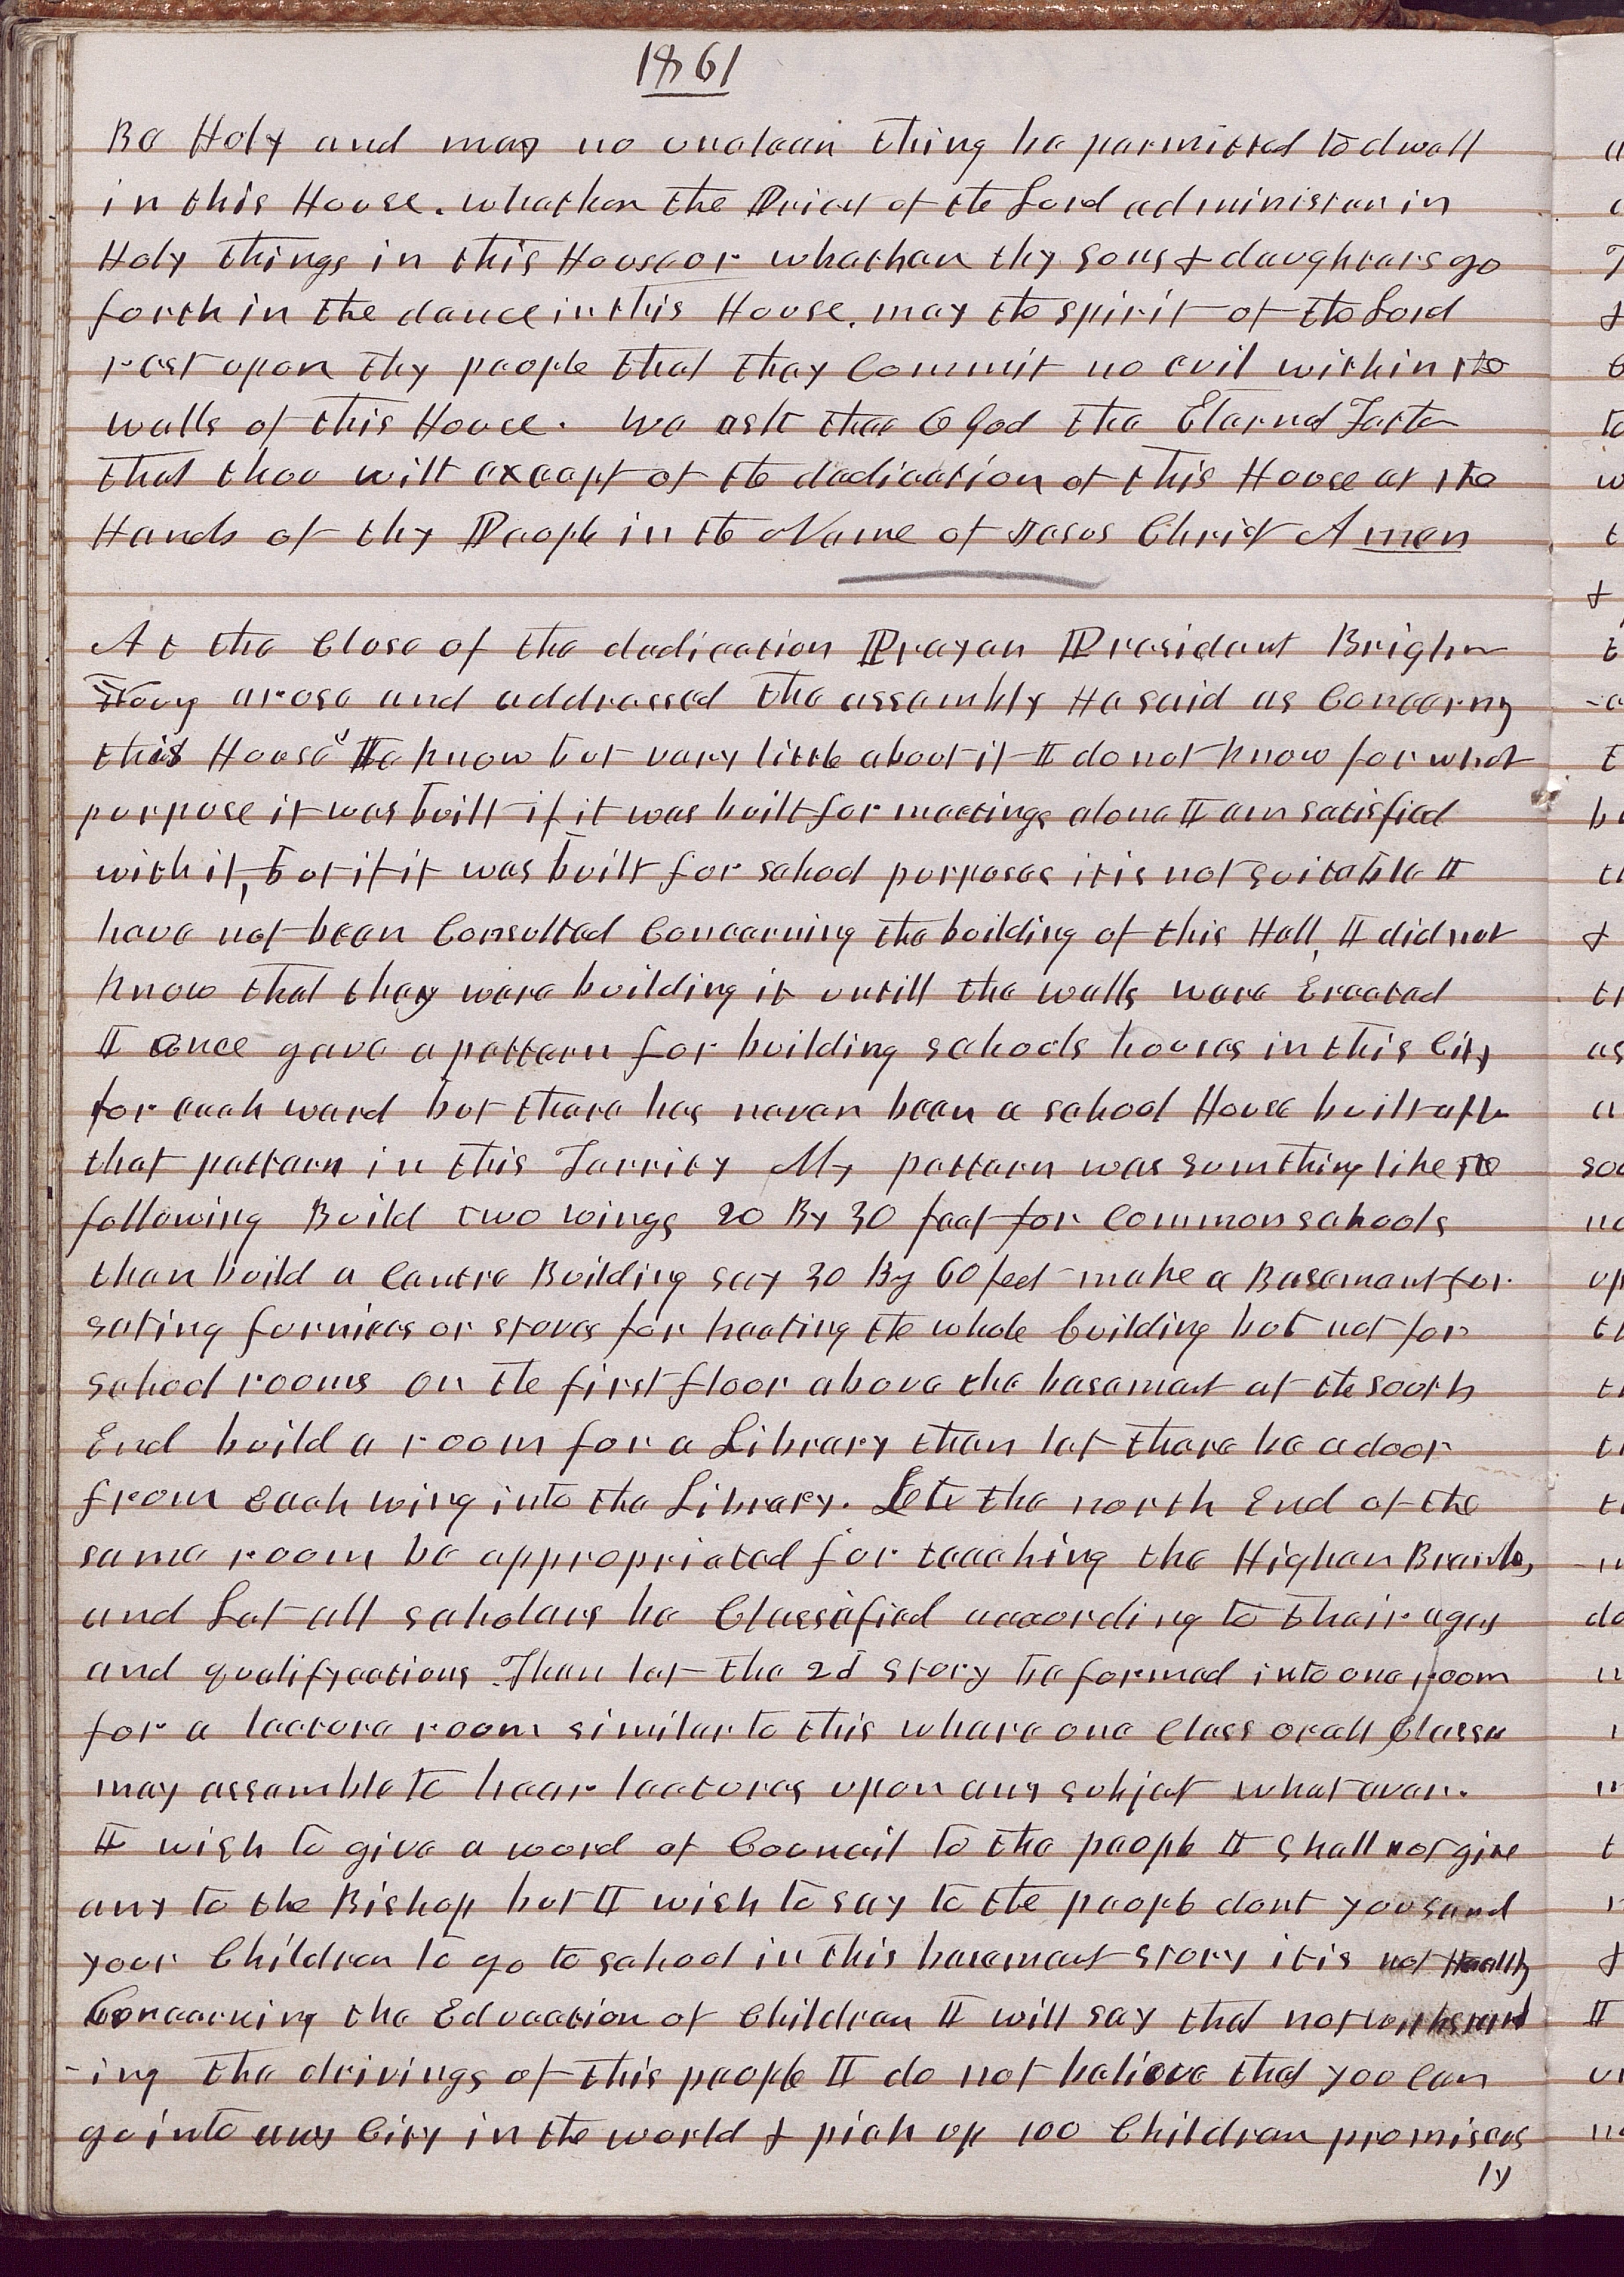 1861
Be Holy and may no unclean thing be permitted to dwell
in this House. whether the Priest of the Lord administer in
Holy things in this House or whether thy sons & daughters go
forth in the dance in this House. may the spirit of the Lord
rest upon thy people that they Commit no evil within the
walls of this House. We ask thee O God the Eternal Father
that thou wilt except of the dedication of this House at the
Hands of thy People in the Name of Jesus Christ Amen
At the Close of the dedication Prayer President Brigham
Young arose and addressed the assembly He said as Concerng
this House I know but very little about it I do not know for what
purpose it was built if it was built for meetings alone I am satisfied
with it, but if it was built for school purposes it is not suitable I
have not been Consulted Concerning the building of this Hall, I did not
know that they were building it untill the walls were Erected
I once gave a pattern for building schools houses in this City
for each ward but there has never been a school House built after
that pattern in this Territy My pattern was sumthing like the
following Build two wings 20 By 30 feet for Common schools
then build a Centre Building say 30 By 60 feet make a Basement for
seting furnices or stoves for heating the whole building but not for
school rooms on the first floor above the basement at the south
End build a room for a Library then let there be a door
from each wing into the Library. Let the north End of the
same room be appropriated for teaching the Higher Branches
and Let all scholars be Classified according to their ages
and qualifycations. Then let the 2d story be formed into one room
for a lecture room similar to this where one Class or all Classes
may assemble to hear lectures upon any subject whatever.
I wish to give a word of Council to the people I shall not give
any to the Bishop but I wish to say to the people dont you send
your Children to go to school in this basement story it is not Healthy
Concerning the Education of Children I will say that notwithstand
-ing the drivings of this people I do not believe that you Can
go into any City in the world & pick up 100 Children promiscus
ly